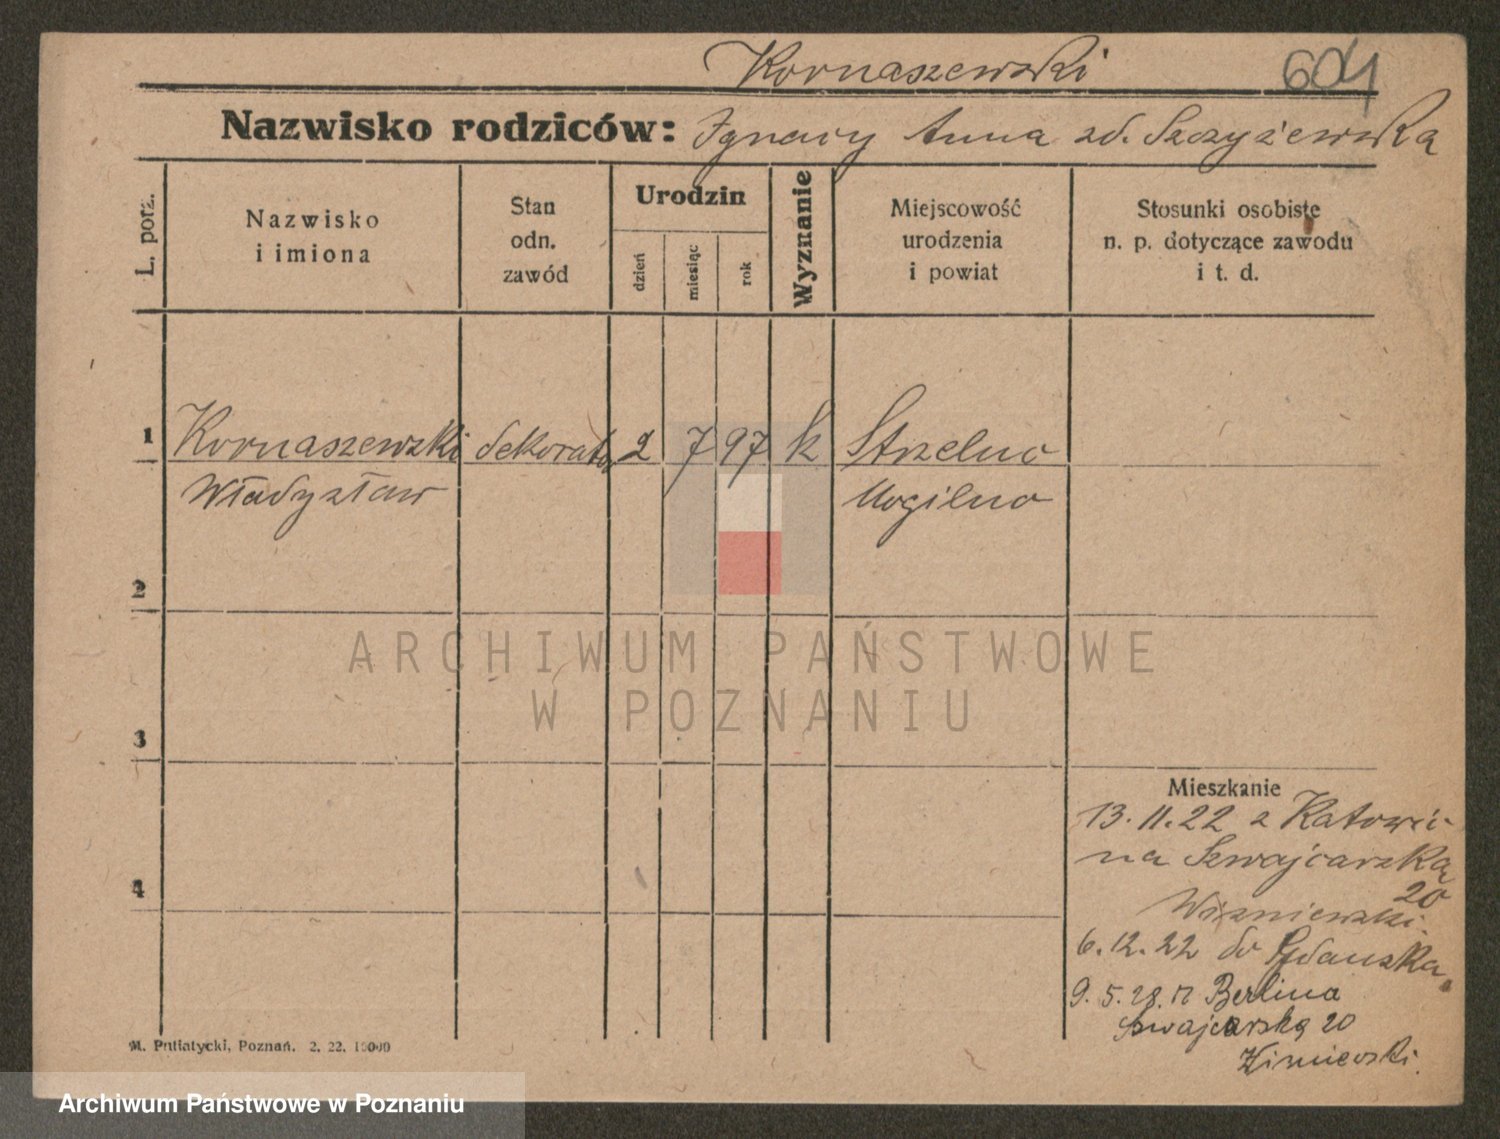 Kornaszewski 604
Nazwisko rodziców: Ignacy Anna zd. Szczyżewska
L. porz.
Nazwisko
i imiona
Stan
odn.
zawód
Urodzin
dzień
miesiąc
rok
Wyznanie
Miejscowość
urodzenia
i powiat
Stosunki osobiste
n. p. dotyczące zawodu
i t. d.
1 Kornaszewski dekorator 2 7 97 k Strzelno
Władysław Mogilno
2
ARCHIWUM PAŃSTWOWE
W POZNANIU
3
Mieszkanie
13.11.22 z Katowic
na Szwajcarską
20
Wiśniewski.
4
6.12.22 do Gdańska
9.5.28. Berlina
Szwajcarską 20
Wiśniewski.
M. Putiatycki, Poznań. 2. 22. 10000
Archiwum Państwowe w Poznaniu